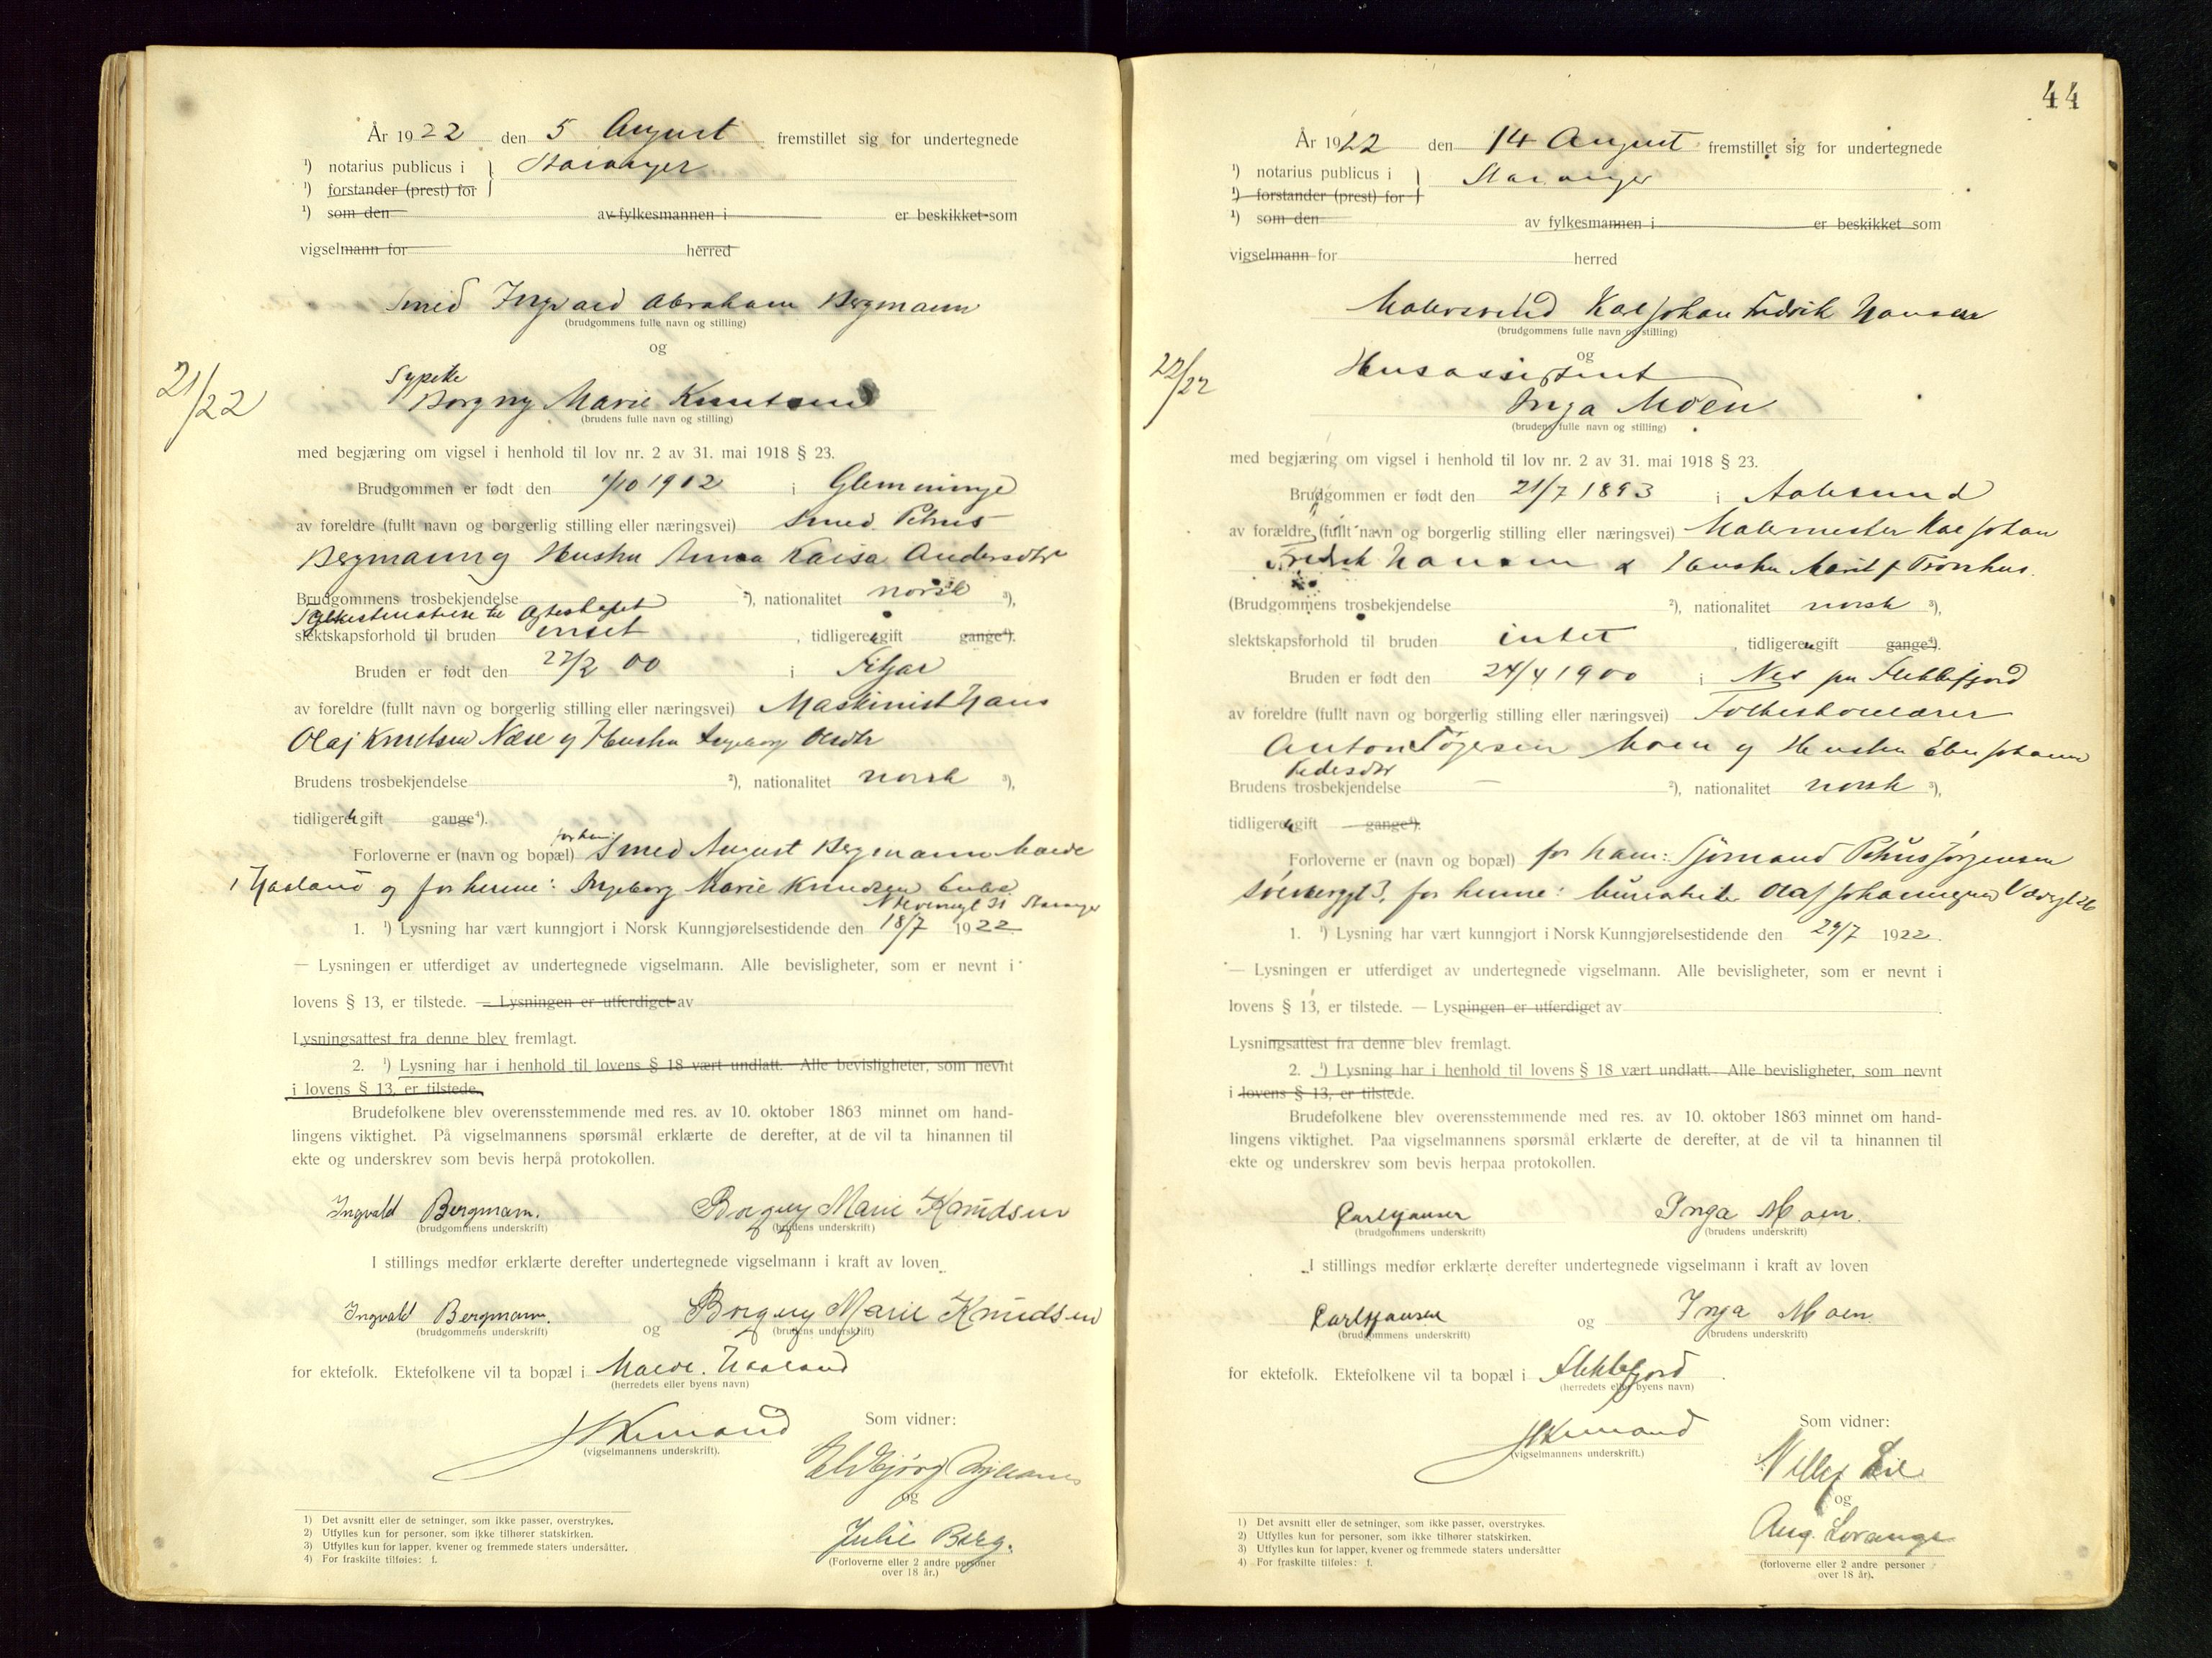 År 1922 den 5 August fremstillet sig for undertegnede
¹) notarius publicus i } Stavanger
¹) forstander (prest) for
¹) som den av fylkesmannen i er beskikket som
vigselmann for herred
Smed Ingvald Abraham Bergmann
(brudgommens fulle navn og stilling)
og
21/22
Sypike
Borgny Marie Knutsen
(brudens fulle navn og stilling)
med begjæring om vigsel i henhold til lov nr. 2 av 31. mai 1918 § 23.
Brudgommen er født den /10 1902 i Glemminge
av foreldre (fullt navn og borgerlig stilling eller næringsvei) Smed Petrus
Bergmann og Hustru Anna Kaisa Andersdtr
Brudgommens trosbekjendelse ²), nationalitet norsk ³),
slektskapsforhold til bruden intet , tidligere gift gange⁴).
Bruden er født den 22/2 00 i Fitjar
av foreldre (fullt navn og borgerlig stilling eller næringsvei) Maskinist Hans
Olaj Knutsen Næse og Hustru Ingeborg Olsdtr
Brudens trosbekjendelse ²), nationalitet norsk ³),
tidligere gift gange⁴).
Forloverne er (navn og bopæl) for ham: Smed August Bergmann Malde
i Haaland og for henne: Ingeborg Marie Knudsen
Stavanger
1. ¹) Lysning har vært kunngjort i Norsk Kunngjørelsestidende den 18/7 1922
— Lysningen er utferdiget av undertegnede vigselmann. Alle bevisligheter, som er nevnt i
lovens § 13, er tilstede. — Lysningen er utferdiget av
Lysningsattest fra denne blev fremlagt.
2. ¹) Lysning har i henhold til lovens § 18 vært undlatt. Alle bevisligheter, som nevnt
i lovens § 13, er tilstede.
Brudefolkene blev overensstemmende med res. av 10. oktober 1863 minnet om hand-
lingens viktighet. På vigselmannens spørsmål erklærte de derefter, at de vil ta hinannen til
ekte og underskrev som bevis herpå protokollen.
Ingvald Bergmann. Borgny Marie Knudsen
(brudgommens underskrift) (brudens underskrift)
I stillings medfør erklærte derefter undertegnede vigselmann i kraft av loven
Ingvald Bergmann. og Borgny Marie Knudsen
(brudgommens underskrift) (brudens underskrift)
for ektefolk. Ektefolkene vil ta bopæl i Malde. Haaland
(herredets eller byens navn)
(vigselmannens underskrift).
Som vidner:
og
Julie Berg.
(Forloverne eller 2 andre personer
over 18 år.)
1) Det avsnitt eller de setninger, som ikke passer, overstrykes.
2) Utfylles kun for personer, som ikke tilhører statskirken.
3) Utfylles kun for lapper, kvener og fremmede staters undersåtter.
4) For fraskilte tilføies: f.
44
År 1922 den 14 August fremstillet sig for undertegnede
¹) notarius publicus i } Stavanger
¹) forstander (prest) for
¹) som den av fylkesmannen i er beskikket som
vigselmann for herred
Malersvend Karl Johan Fredrik Hansen
(brudgommens fulle navn og stilling)
og
22/22
Husassistent
Inga Moen
(brudens fulle navn og stilling)
med begjæring om vigsel i henhold til lov nr. 2 av 31. mai 1918 § 23.
Brudgommen er født den 21/7 1893 i Aalesund
av forældre (fullt navn og borgerlig stilling eller næringsvei) Malermester Karl Johan
Fredrik Hansen & Hustru Marit f Tronhus.
(Brudgommens trosbekjendelse ²), nationalitet norsk ³),
slektskapsforhold til bruden intet , tidligere gift gange⁴).
Bruden er født den 24/4 1900 i Nes pr Flekkefjord
av foreldre (fullt navn og borgerlig stilling eller næringsvei) Folkeskolelærer
Anton Tøgersen Moen og Hustru Johanne
Pedersdtr
Brudens trosbekjendelse — ²), nationalitet norsk ³),
tidligere gift gange⁴).
Forloverne er (navn og bopæl) for ham: Sjømand Petrus Jørgensen
Sølvberggt 3, for henne: Olaf Johannesen
1. ¹) Lysning har vært kunngjort i Norsk Kunngjørelsestidende den 29/7 1922.
— Lysningen er utferdiget av undertegnede vigselmann. Alle bevisligheter, som er nevnt i
lovens § 13, er tilstede. — Lysningen er utferdiget av
Lysningsattest fra denne blev fremlagt.
2. ¹) Lysning har i henhold til lovens § 18 vært undlatt. Alle bevisligheter, som nevnt
i lovens § 13, er tilstede.
Brudefolkene blev overensstemmende med res. av 10. oktober 1863 minnet om hand-
lingens viktighet. Paa vigselmannens spørsmål erklærte de derefter, at de vil ta hinannen til
ekte og underskrev som bevis herpaa protokollen.
Carl Hansen Inga Moen.
(brudgommens underskrift) (brudens underskrift)
I stillings medfør erklærte derefter undertegnede vigselmann i kraft av loven
Carl Hansen og Inga Moen.
(brudgommens underskrift) (brudens underskrift)
for ektefolk. Ektefolkene vil ta bopæl i Flekkefjord
(herredets eller byens navn)
(vigselmannens underskrift.)
Som vidner:
Willy Lie
og
Aug. Lorange
(forloverne eller 2 andre personer
over 18 år).
1) Det avsnitt eller de setninger, som ikke passer, overstrykes.
2) Utfylles kun for personer, som ikke tilhører statskirken.
3) Utfylles kun for lapper, kvener og fremmede staters undersåtter
4) For fraskilte tilføies: f.